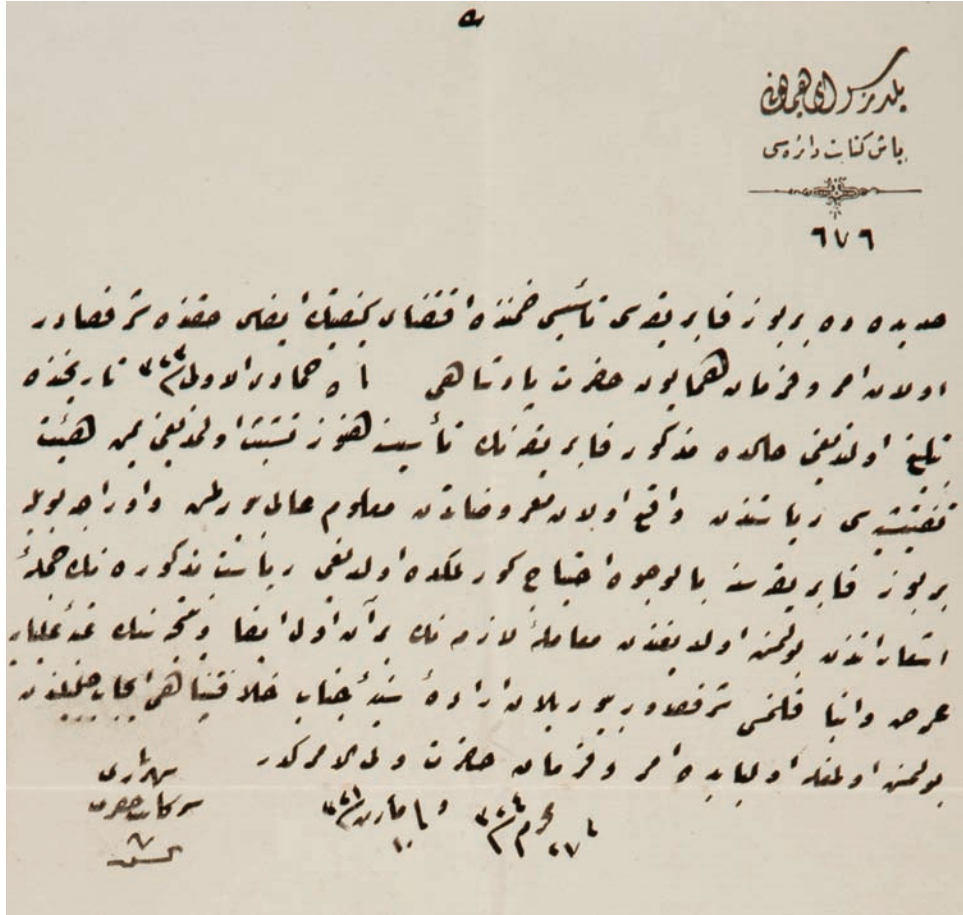 يلديز سراى همايونى
باش كتابت دائره سى
٦٧٦
حديده ده بر بوز فابريقه سى تأسيسى ضمننده اقتضاى كيفيتك ايفاسى حقنده شرفصادر
اولان امر و فرمان همايون حضرت پادشاهى جمادى الاولى تاريخنده
تبليغ اولنديغى حالده مذكور فابريقه نك تأسيسنه هنوز تشبث اولنمديغى يمن هيئت
تفتيشيه سى رياستندن واقع اولان معروضاتدن معلوم عالى بيوريلمش و اورجه بويله
بر بوز فابريقه سنه بالوجوه احتياج كورلمكده اولديغى رياست مذكوره نك جملۀ
اشعاراتندن بولنمش اولديغندن معاملۀ لازمه نك بر آن اول ايفا و نتيجه سنك عتبۀ عليايه
عرض و انبا قلنمسى شرفصدور بيوريلان ارادۀ سنيۀ جناب خلافتپناهى ايجاب جليلندن
بولنمش اولمغله اولبابده امر و فرمان حضرت ولى الامركدر
محرم ٣٢٤ مارت ٣٢١
سركاتب حضرت شهريارى